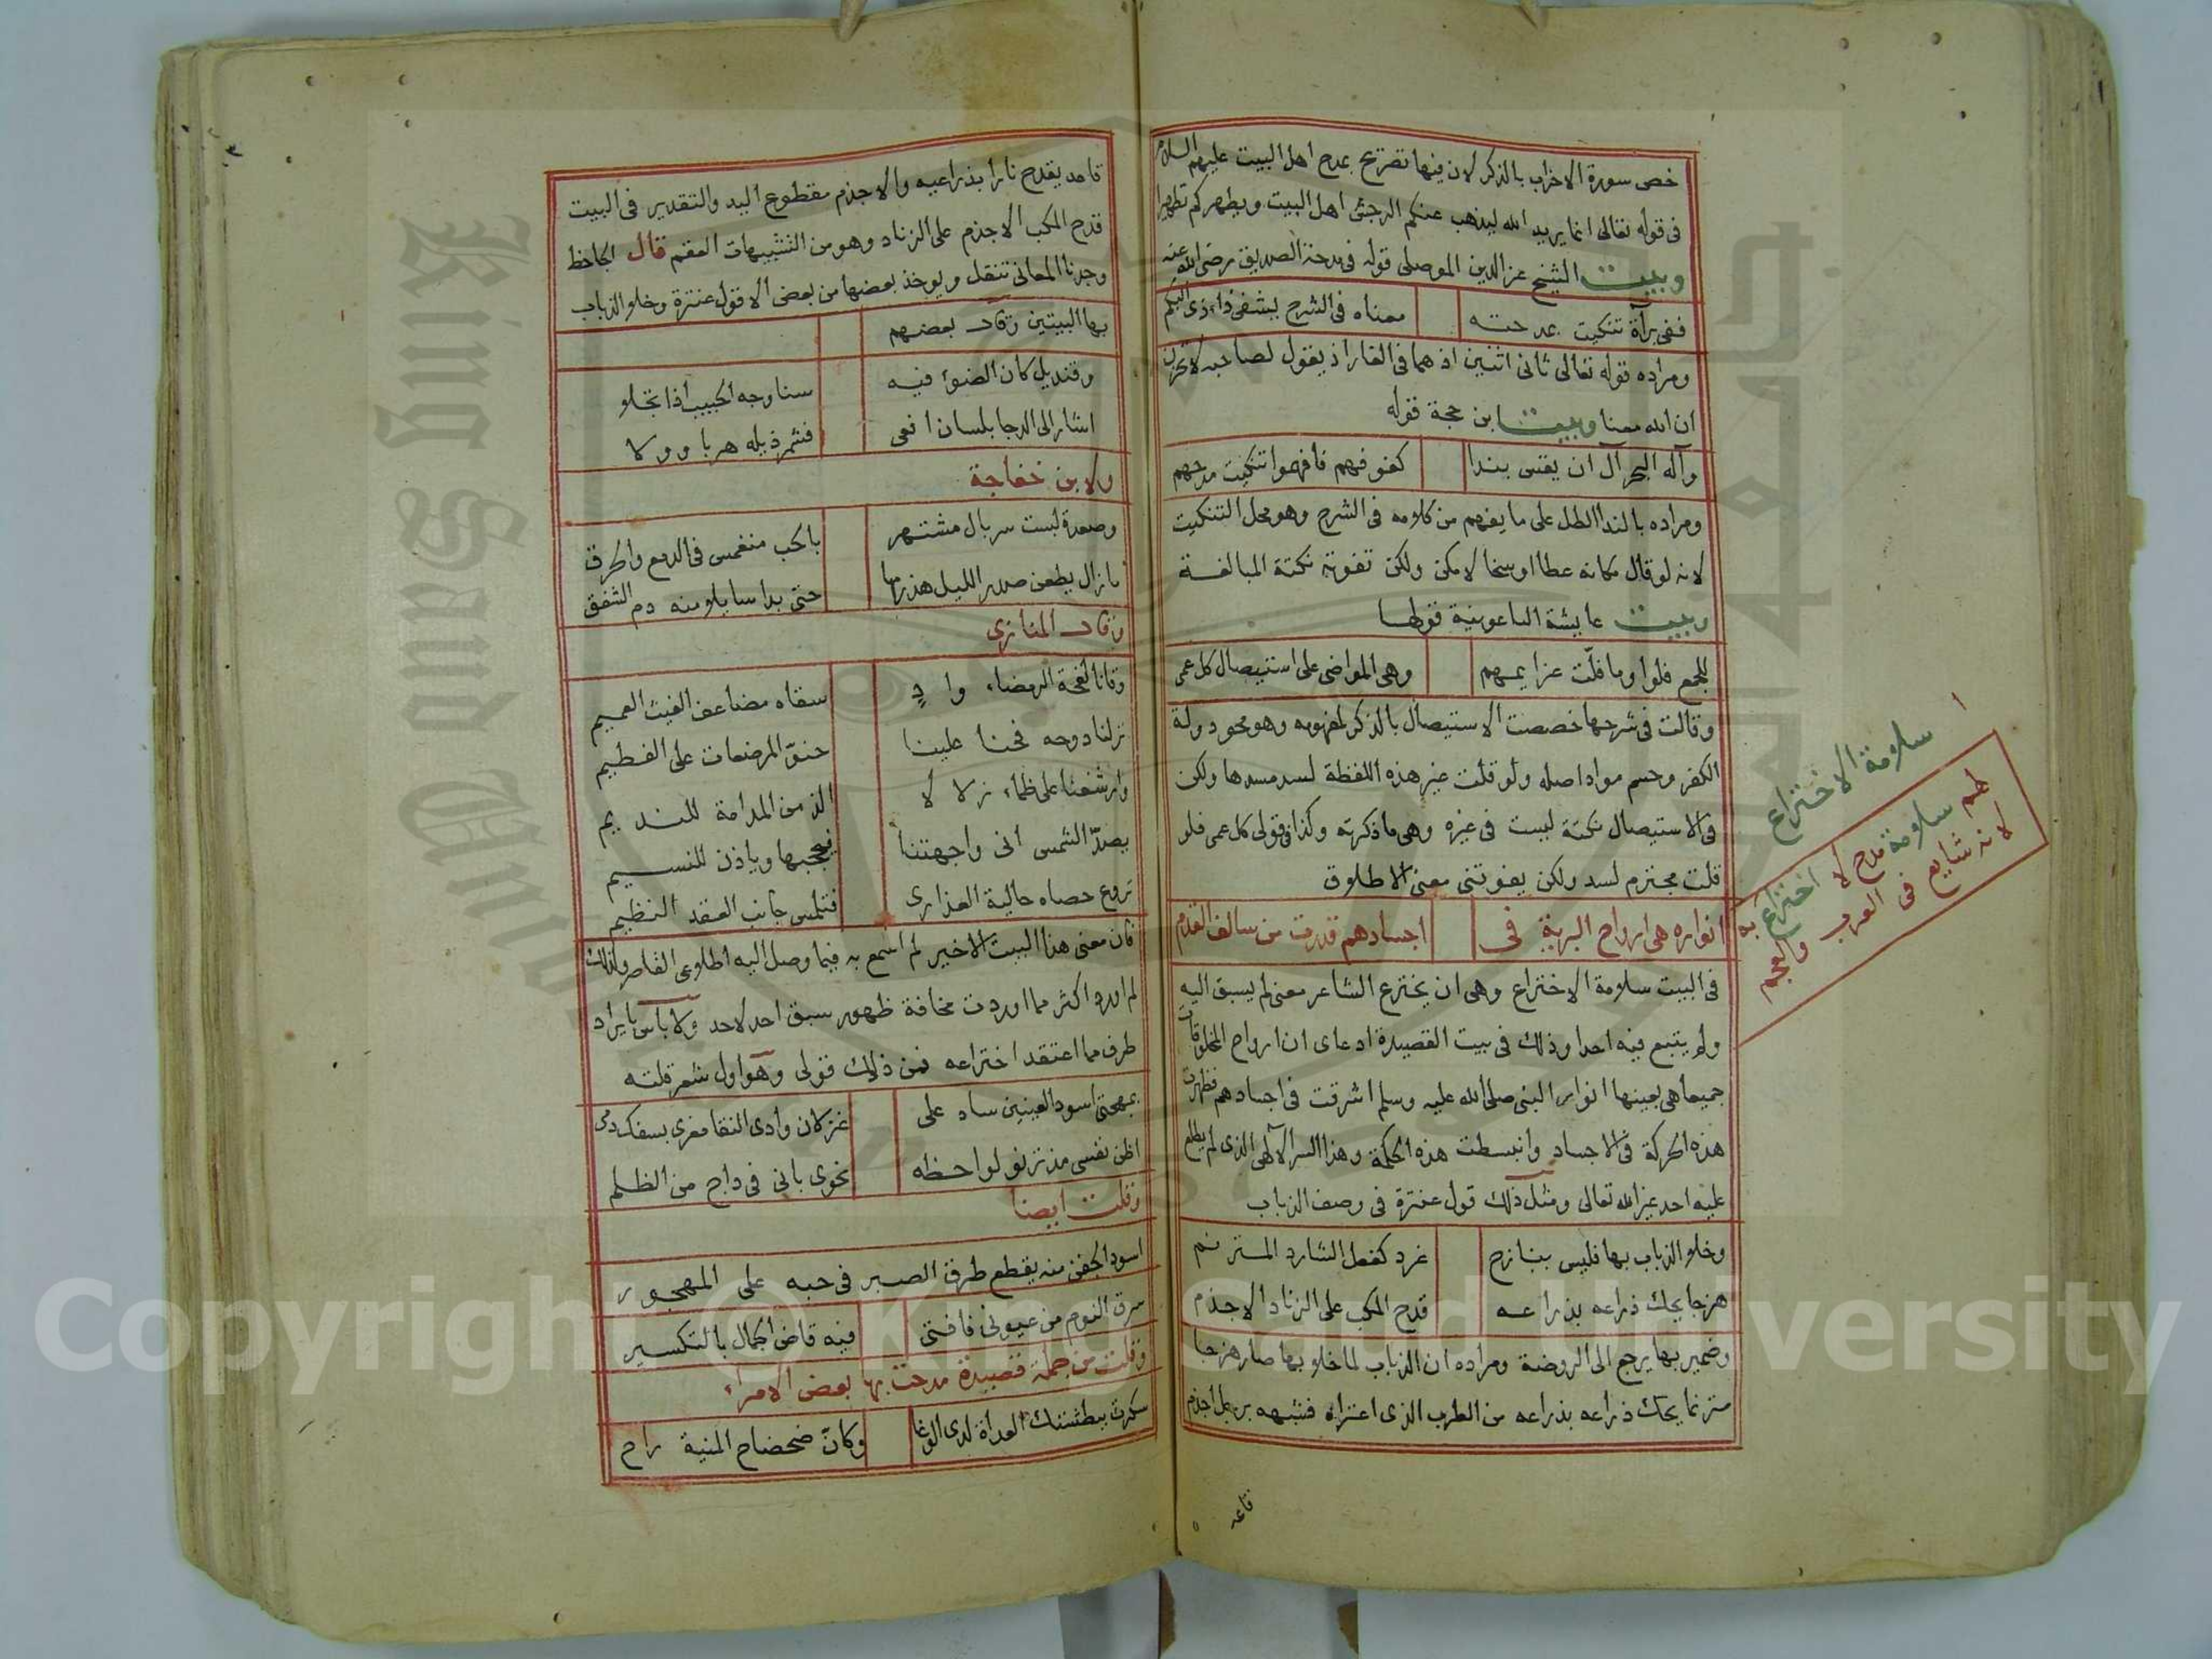 خص سورة الاحزاب بالذكر لان فيها تصريح بمدح اهل البيت عليهم السلام
فى قوله تعالى انما يريد الله ليذهب عنكم الرجس اهل البيت ويطهركم تطهيرا
وبيت الشيخ عز الدين الموصلى قوله فى مدحة الصديق رضى الله عنه
ففى برآة تنكيت بمدحته معناه فى الشرح يشفى داء ذى البكم
ومراده قوله تعالى ثانى اثنين اذ هما فى الغار اذ يقول لصاحبه لا تحزن
ان الله معنا وبيت ابن حجة قوله
وآله البحر آل ان يقس بندا كفوفهم فافهموا تنكيت مدحهم
ومراده بالندا الطل على ما يفهم من كلامه فى الشرح وهو محل التنكيت
لانه لو قال مكانه عطا او سخا لامكن ولكن تفوته نكتة المبالغة
وبيت عايشة الباعونية قولها
للجمع فلوا وما فلت عزايمهم وهى المواضى على استيصال كل عمى
وقالت فى شرحها خصصت الاستيصال بالذكر لمفهومه وهو محو دولة
الكفر وحسم مواد اصله ولو قلت غير هذه اللفظة لسد مسدها ولكن
فى الاستيصال نكتة ليست فى غيره وهى ما ذكرته وكذا فى قولى كل عمى فلو
قلت مجترم لسد ولكن يفوتنى معنى الاطلاق
انواره هى ارواح البرية فى اجسادهم قدرت من سالف القدم
فى البيت سلامة الاختراع وهى ان يخترع الشاعر معنى لم يسبق اليه
ولم يتبع فيه احدا وذلك فى بيت القصيدة ادعاى ان ارواح المخلوقات
جميعا هى بعينها انوار النبى صلى الله عليه وسلم اشرقت فى اجسادهم فظهرت
هذه الحركة فى الاجساد وانبسطت هذه الحكمة وهذا السر الآلهى الذى لم يطلع
عليه احد غير الله تعالى ومثل ذلك قول عنترة فى وصف الذباب
وخلا الذباب بها فليس بنازح غرد كفعل الشارد المترنم
هزجا يحك ذراعه بذراعه قدح المكب على الزناد الاجذم
وضمير بها يرجع الى الروضة ومراده ان الذباب لما خلا بها صار هزجا
مترنما يحك ذراعه بذراعه من الطرب الذى اعتراه فشبهه برجل اجذم
قاعد
سلامة الاختراع
سلامة مدح لا اختراع به
لانه شايع فى العرب والعجم
قاعد يقدح نارا بذراعيه والاجذم مقطوع اليد والتقدير فى البيت
قدح المكب الاجذم على الزناد وهو من التشبيهات العقم قال الجاحظ
وجدنا المعانى تنقل ويوخذ بعضها من بعض الا قول عنترة وخلا الذباب
بها البيتين وقال بعضهم
وقنديل كان الضوء فيه سنا وجه الحبيب اذا تجلا
اشار الى الدجا بلسان افعى فشمر ذيله هربا وولا
ولابن خفاجة
وصعدة لبست سربال مشتهر بالحب منغمس فى الدمع والحرق
ما زال يطعن صدر الليل حتى بدا سايلا منه دم الشفق
وقال المنازى
وقانا لفحة الرمضاء وادٍ سقاه مضاعف الغيث العميم
نزلنا دوحه فحنا علينا حنوّ المرضعات على الفطيم
وارشفنا على ظماء زلالا الذ من المدامة للنديم
يصدّ الشمس انى واجهتنا فيحجبها وياذن للنسيم
تروع حصاه حالية العذارى فتلمس جانب العقد النظيم
فان معنى هذا البيت الاخير لم اسمع به فيما وصل اليه اطلاعى القاصر ولذلك
لم اورد اكثر مما اوردت مخافة ظهور سبق احد لاحد ولا باس بايراد
طرف مما اعتقد اختراعه فمن ذلك قولى وهو اول شعر قلته
بمهجتى اسود العينين ساد على غزلان وادى النقا مغرى بسفك دمى
اظن نفسى مذ ترنو لواحظه نحوى بانى فى داج من الظلم
وقلت ايضا
اسود الجفن منه يقطع طرق الصبر فى حبه على المهجور
سرق النوم من عيونى فافتى فيه قاض الجمال بالتكسير
وقلت من جملة قصيدة مدحت بها بعض الامراء
سكرت ببطشتك العداة لدى الوغا وكانّ ضحضاح المنية راح
Copyright © King Saud University
King Saud University